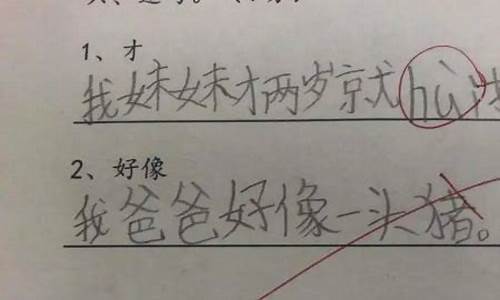 1、才
我妹妹才两岁就hù
2、好像
我爸爸好像一头猪。